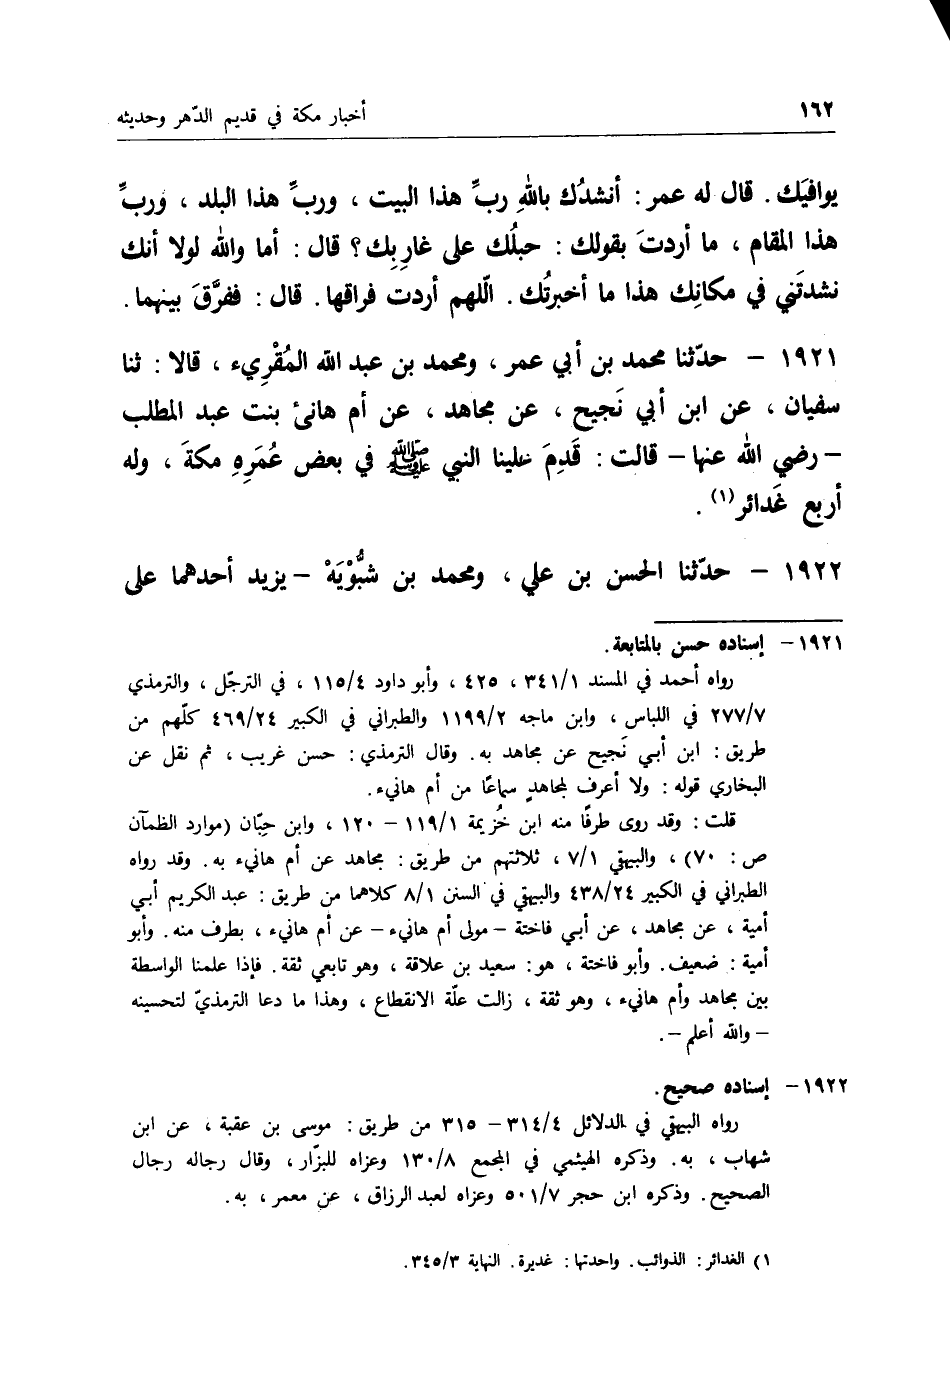 ١٦٢ أخبار مكة في قديم الدّهر وحديثه
يوافيَك . قال له عمر : أنشدُك باللهِ ربِّ هذا البيت ، وربِّ هذا البلد ، وربِّ
هذا المقام ، ما أردتَ بقولك : حبلُك على غارِبِك؟ قال : أما والله لولا أنك
نشدتَني في مكانِك هذا ما أخبرتُك . الّلهم أردت فراقها . قال : ففرَّقَ بينهما .
١٩٢١ – حدّثنا محمد بن أبي عمر ، ومحمد بن عبد الله المُقْرِيء ، قالا : ثنا
سفيان ، عن ابن أبي نَجيح ، عن مجاهد ، عن أم هانئ بنت عبد المطلب
– رضي الله عنها – قالت : قَدِمَ علينا النبي ﷺ في بعض عُمَرِهِ مكةَ ، وله
أربع غَدائر(١) .
١٩٢٢ – حدّثنا الحسن بن علي ، ومحمد بن شبُّوْيَهْ – يزيد أحدهما على
١٩٢١– إسناده حسن بالمتابعة .
رواه أحمد في المسند ٣٤١/١ ، ٤٢٥ ، وأبو داود ١١٥/٤ ، في الترجّل ، والترمذي
٢٧٧/٧ في اللباس ، وابن ماجه ١١٩٩/٢ والطبراني في الكبير ٤٦٩/٢٤ كلّهم من
طريق : ابن أبي نَجيح عن مجاهد به . وقال الترمذي : حسن غريب ، ثم نقل عن
البخاري قوله : ولا أعرف لمجاهدٍ سماعًا من أم هانيء .
قلت : وقد روى طرفًا منه ابن خُزيمة ١١٩/١ – ١٢٠ ، وابن حِبّان (موارد الظمآن
ص : ٧٠) ، والبيهقي ٧/١ ، ثلاثتهم من طريق : مجاهد عن أم هانيء به . وقد رواه
الطبراني في الكبير ٤٣٨/٢٤ والبيهقي في السنن ٨/١ كلاهما من طريق : عبد الكريم أبي
أمية ، عن مجاهد ، عن أبي فاختة – مولى أم هانيء – عن أم هانيء ، بطرف منه . وأبو
أمية : ضعيف . وأبو فاختة ، هو : سعيد بن علاقة ، وهو تابعي ثقة . فإذا علمنا الواسطة
بين مجاهد وأم هانيء ، وهو ثقة ، زالت علّة الانقطاع ، وهذا ما دعا الترمذيّ لتحسينه
– والله أعلم – .
١٩٢٢– إسناده صحيح .
رواه البيهقي في الدلائل ٣١٤/٤– ٣١٥ من طريق : موسى بن عقبة ، عن ابن
شهاب ، به . وذكره الهيثمي في المجمع ١٣٠/٨ وعزاه للبزّار ، وقال رجاله رجال
الصحيح . وذكره ابن حجر ٥٠١/٧ وعزاه لعبد الرزاق ، عن معمر ، به .
١) الغدائر : الذوائب . واحدتها : غديرة . النهاية ٣٤٥/٣ .